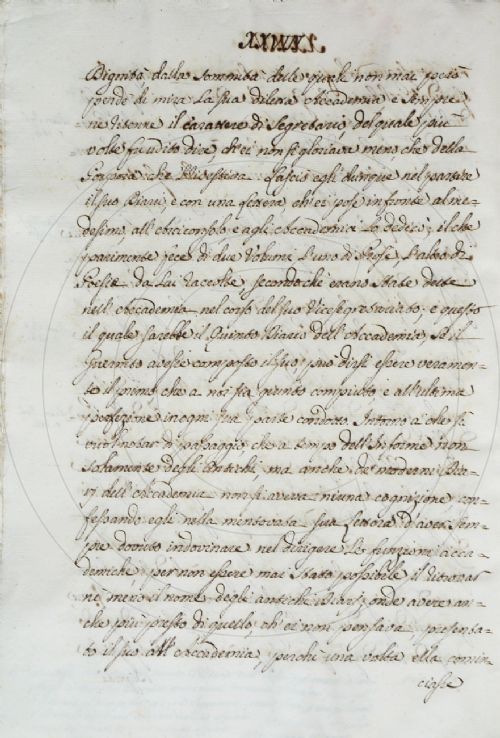 LXXVIII.
Dignità dalla sommità delle quali non mai però
perdè di mira la sua diletta Accademia e sempre
ne ritenne il carattere di Segretario, del quale più
volte fu udito dire, ch'ei non si gloriava meno, che della
Porpora che Lasciò egli dunque nel
il suo Diario, e con una lettera, ch'ei pose in fronte al me=
desimo, all'Arciconsolo e agli Accademici lo dedicò; il che
parimente fece di due Volumi l'uno di Prose l'altro di
Poesie da lui raccolte, secondochè erano state dette
nell'Accademia nel corso del suo Vicesegretariato; e questo
il quale sarebbe il Quinto Diario dell'Accademia, se il
Guernito avesse composto il suo; può dirsi essere veramen=
te il primo che a noi sia giunto compiuto e all'ultima
perfezione in ogni sua parte condotto. Intorno a che si
vuol notar di passaggio, che a tempo dell'Informe non
solamente degli Antichi ma anche de' moderni Dia=
ri dell'Accademia non si aveva niuna cognizione, con=
fessando egli nella mentovata sua lettera d'aver sem=
pre dovuto indovinare nel dirigere le funzioni acca=
demiche, per non essere mai stato possibile il ritrovar
nè meno il nome degli antichi Diari; onde avere an=
che più presto di quello, ch'ei non pensava, presenta=
to il suo all'Accademia, perchè una volta ella comin
ciasse